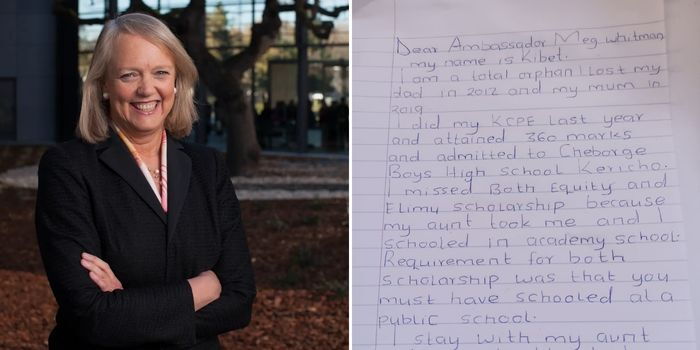 Dear Ambassador Meg. Whitman
my name is Kibet.
I am a total orphan I lost my
dad in 2012 and my mum in
2019
I did my KCPE last year
and attained 360 marks
and admitted to Cheborge
Boys High School Kericho.
I missed Both Equity and
Elimu scholarship because
my aunt took me and I
schooled in academy school.
Requirement for both
scholarship was that you
must have schooled at a
public school.
I stay with my aunt